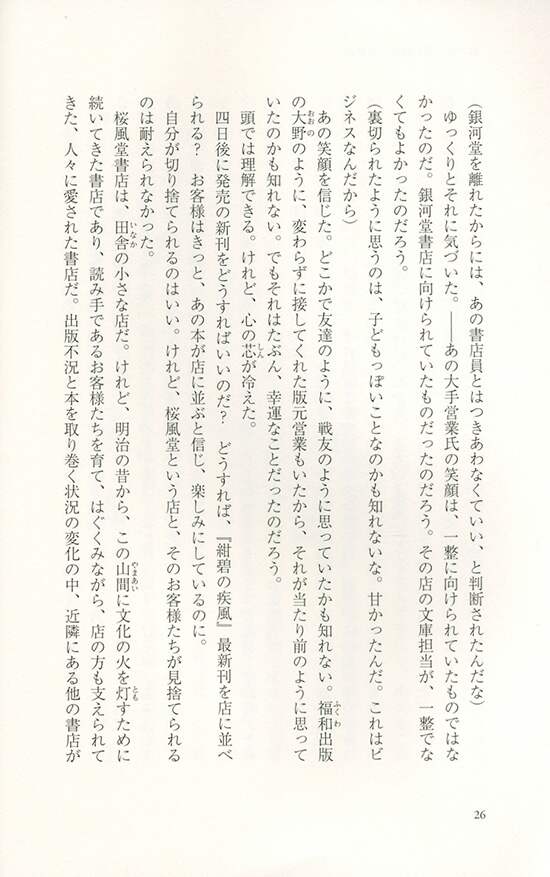 (銀河堂を離れたからには、あの書店員とはつきあわなくていい、と判断されたんだな)
ゆっくりとそれに気づいた。――あの大手営業氏の笑顔は、一整に向けられていたものではな
かったのだ。銀河堂書店に向けられていたものだったのだろう。その店の文庫担当が、一整でな
くてもよかったのだろう。
(裏切られたように思うのは、子どもっぽいことなのかも知れないな。甘かったんだ。これはビ
ジネスなんだから)
あの笑顔を信じた。どこかで友達のように、戦友のように思っていたかも知れない。福和出版
の大野のように、変わらずに接してくれた版元営業もいたから、それが当たり前のように思って
いたのかも知れない。でもそれはたぶん、幸運なことだったのだろう。
頭では理解できる。けれど、心の芯が冷えた。
四日後に発売の新刊をどうすればいいのだ? どうすれば、『紺碧の疾風』最新刊を店に並べ
られる? お客様はきっと、あの本が店に並ぶと信じ、楽しみにしているのに。
自分が切り捨てられるのはいい。けれど、桜風堂という店と、そのお客様たちが見捨てられる
のは耐えられなかった。
桜風堂書店は、田舎の小さな店だ。けれど、明治の昔から、この山間に文化の火を灯すために
続いてきた書店であり、読み手であるお客様たちを育て、はぐくみながら、店の方も支えられて
きた、人々に愛された書店だ。出版不況と本を取り巻く状況の変化の中、近隣にある他の書店が
26